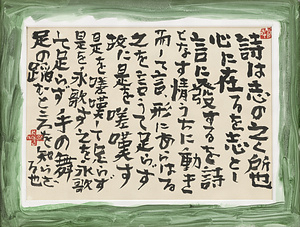 詩は志の之く所也
心に在るを志とし
言に發するを詩
となす情うちに動き
而して言に形にあらはる
之を言うて足らず
故に是を嗟嘆す
是を嗟嘆して足らず
是を永歌す之を永歌
して足らず手の舞
足の蹈むところを知らざ
る也